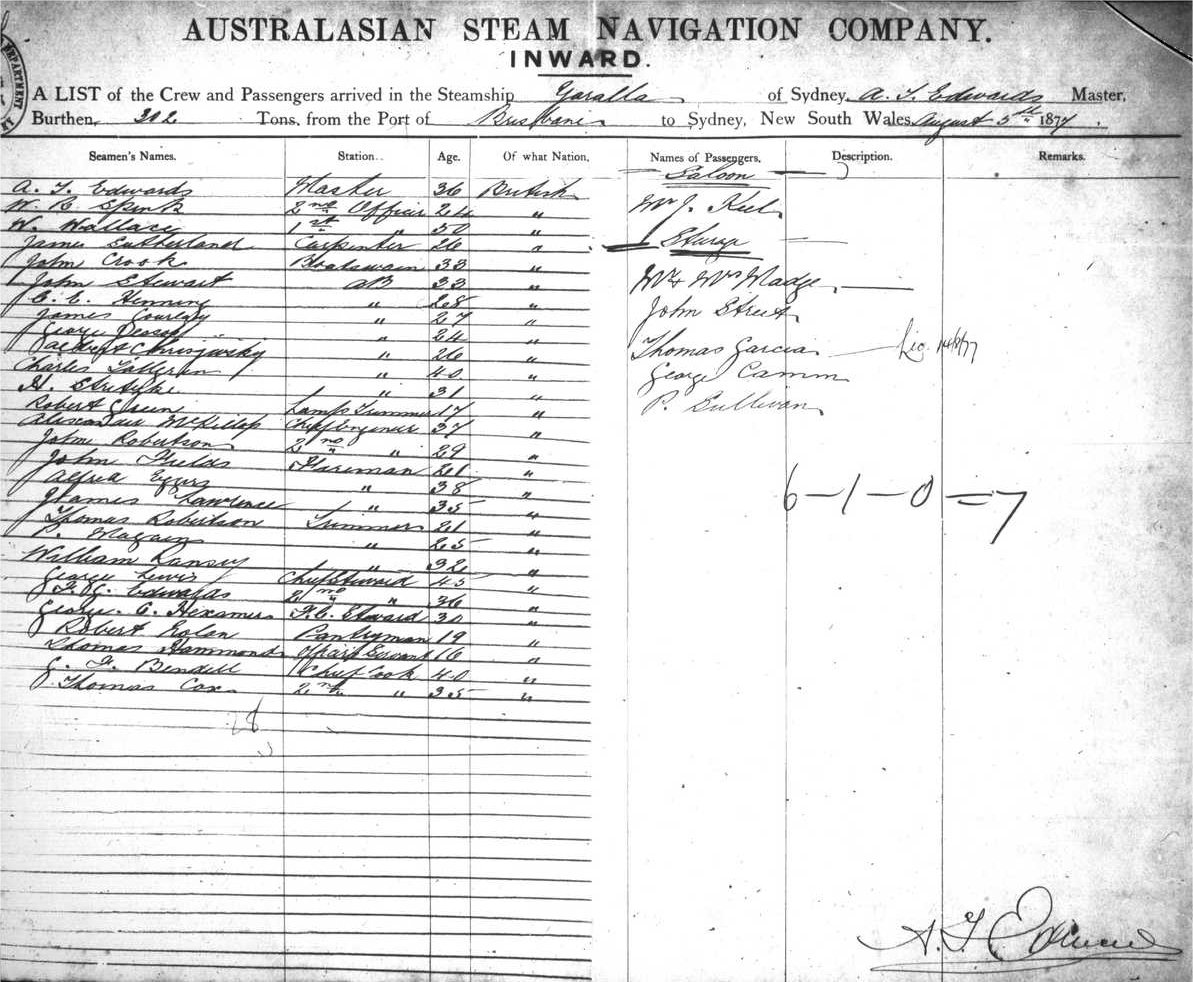 AUSTRALASIAN STEAM NAVIGATION COMPANY.
INWARD.
A LIST of the Crew and Passengers arrived in the Steamship Yaralla of Sydney, A. J. Edwards Master,
Burthen, 302 Tons, from the Port of Brisbane to Sydney, New South Wales August 5th 1877.
Seamen's Names. Station. Age. Of what Nation. Names of Passengers. Description. Remarks.
A. J. Edwards Master 36 British
W. Spink 2nd Officer 24 "
W. Wallace 1st " 50 "
James Sutherland Carpenter 26 "
John Crook Boatswain 33 "
John Stewart AB 33 "
C. C. Henning " 28 "
James " 27 "
George " 24 "
" 26 "
Charles " 40 "
H. " 31 "
Robert Green Lamp Trimmer 17 "
Alexander McKillop Chief Engineer 37 "
John Robertson 2nd " 29 "
John Fields Fireman 21 "
Alfred " 38 "
James Lawrence " 35 "
Thomas Robertson Trimmer 21 "
P. " 25 "
William Ransey " 32 "
George Lewis Chief Steward 45 "
Edwards 2nd " 36 "
George. C. Hexamer F. C. Steward 30 "
Robert Pantryman 19 "
Thomas Hammond Officers Servant 16 "
Bendell Chief Cook 40 "
Thomas Cox 2nd " 35 "
28
Saloon
Mr J. Keel
Steerage
Mr & Mrs Madge
John Street
Thomas Garcia 14/8/77
George Camm
P. Sullivan
6 – 1 – 0 = 7
A. J. Edwards
DEPARTMENT